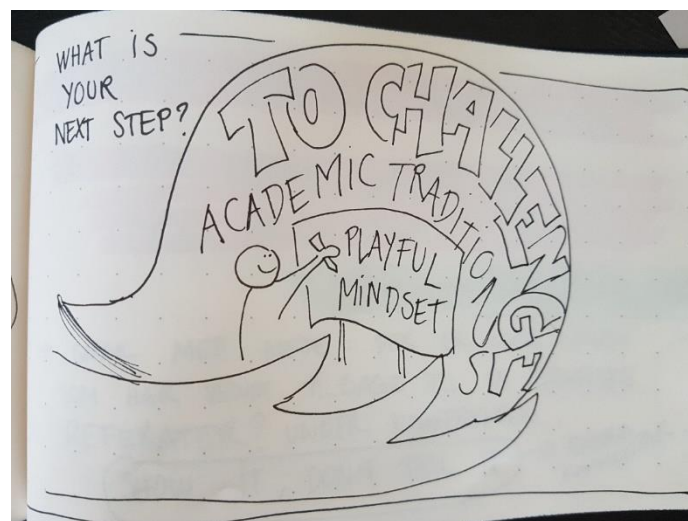 WHAT IS
YOUR
NEXT STEP?
TO CHALLENGE
ACADEMIC TRADITIONS
PLAYFUL
MINDSET